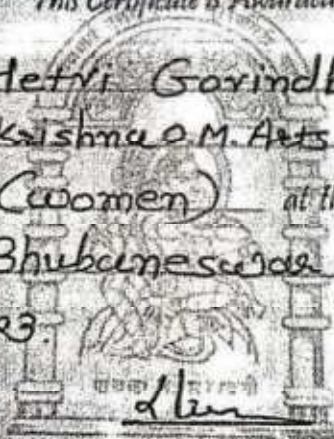 This Certificate is Awarded
Hetvi Govindb
Krishna O.M. Arts
(women) at th
Bhubaneswar
23.